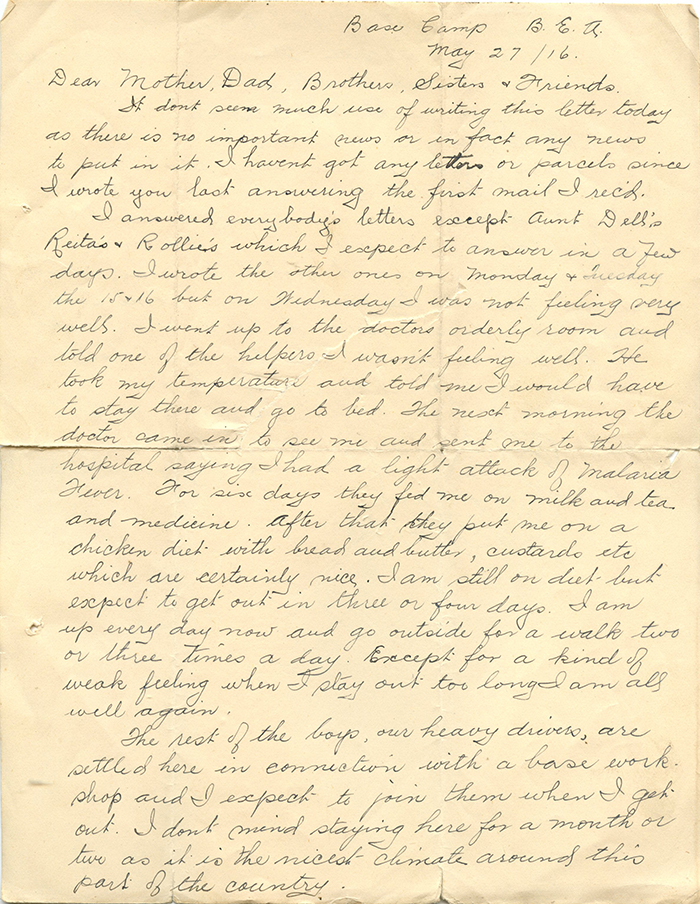 Base Camp B.E.A.
May 27/16.
Dear Mother, Dad, Brothers, Sisters & Friends.
It dont seem much use of writing this letter today
as there is no important news or in fact any news
to put in it. I havent got any letters or parcels since
I wrote you last answering the first mail I rec'd.
I answered everybody's letters except Aunt Dell's
Reita's & Rollie's which I expect to answer in a few
days. I wrote the other ones on Monday & Tuesday
the 15 & 16 but on Wednesday I was not feeling very
well. I went up to the doctors orderly room and
told one of the helpers I wasn't feeling well. He
took my temperature and told me I would have
to stay there and go to bed. The next morning the
doctor came in to see me and sent me to the
hospital saying I had a light attack of Malaria
Fever. For six days they fed me on milk and tea
and medicine. After that they put me on a
chicken diet with bread and butter, custards etc
which are certainly nice. I am still on diet but
expect to get out in three or four days. I am
up every day now and go outside for a walk two
or three times a day. Except for a kind of
weak feeling when I stay out too long I am all
well again.
The rest of the boys, our heavy drivers, are
settled here in connection with a base work-
shop and I expect to join them when I get
out. I dont mind staying here for a month or
two as it is the nicest climate around this
part of the country.